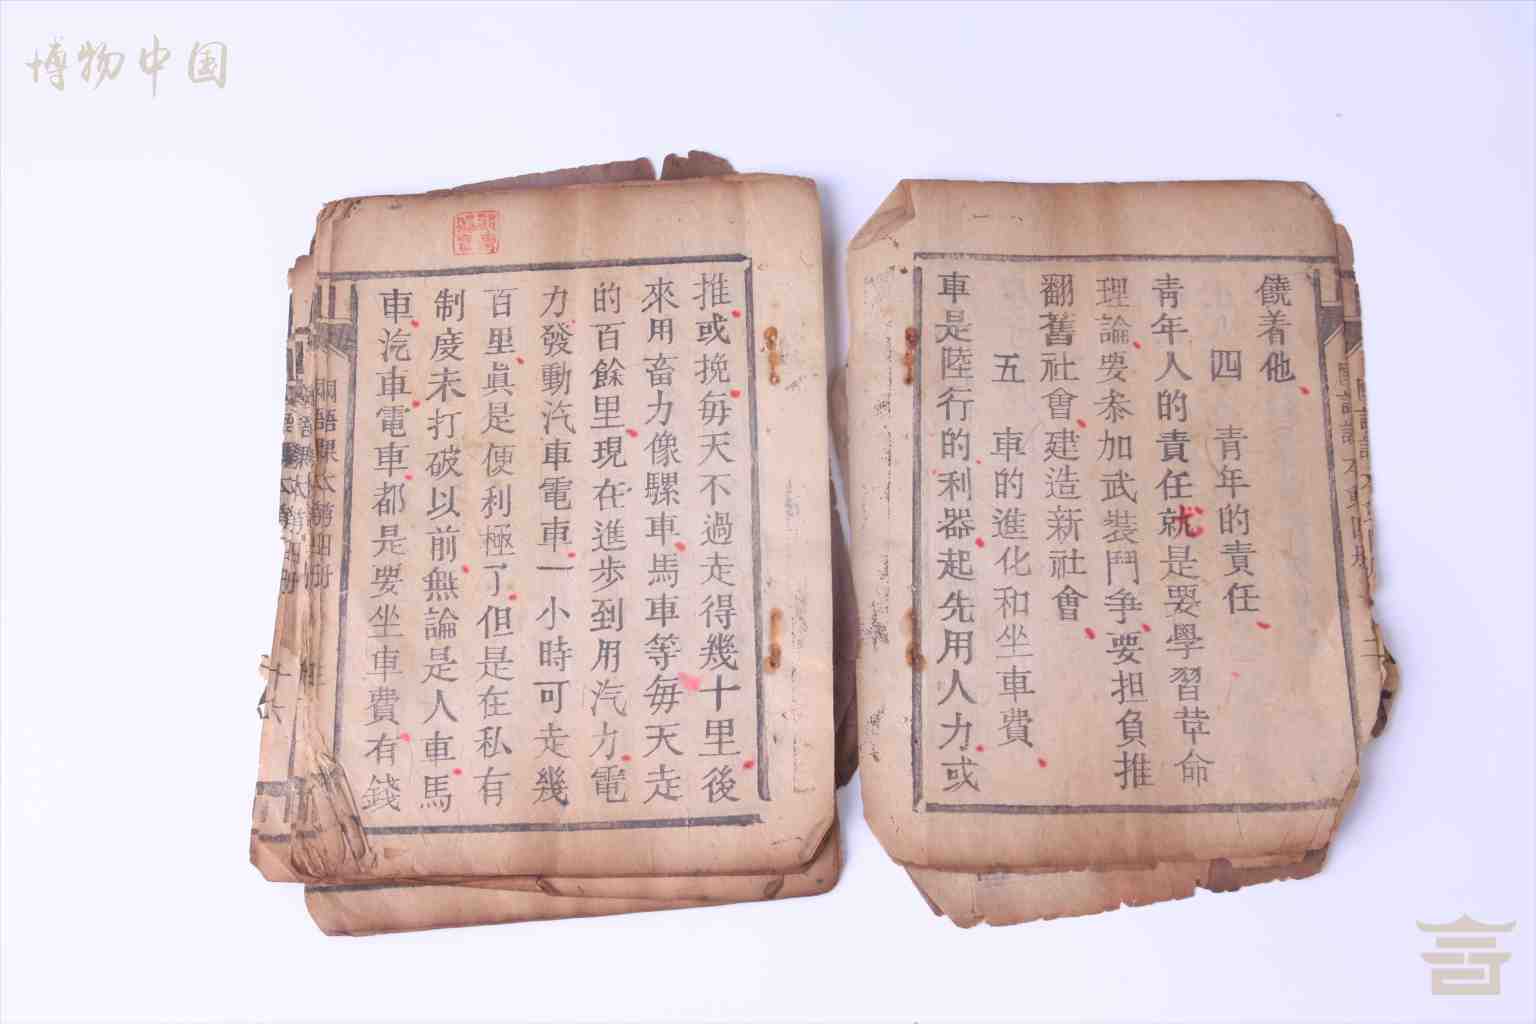 博物中国
饒着他
四 青年的責任
青年人的責任就是要學習革命
理論要参加武裝鬥争要担負推
翻舊社會建造新社會
五 車的進化和坐車費
車是陸行的利器起先用人力或
推或挽每天不過走得幾十里後
來用畜力像騾車馬車等每天走
的百餘里現在進步到用汽力電
力發動汽車電車一小時可走幾
百里眞是便利極了但是在私有
制度未打破以前無論是人車馬
車汽車電車都是要坐車費有錢